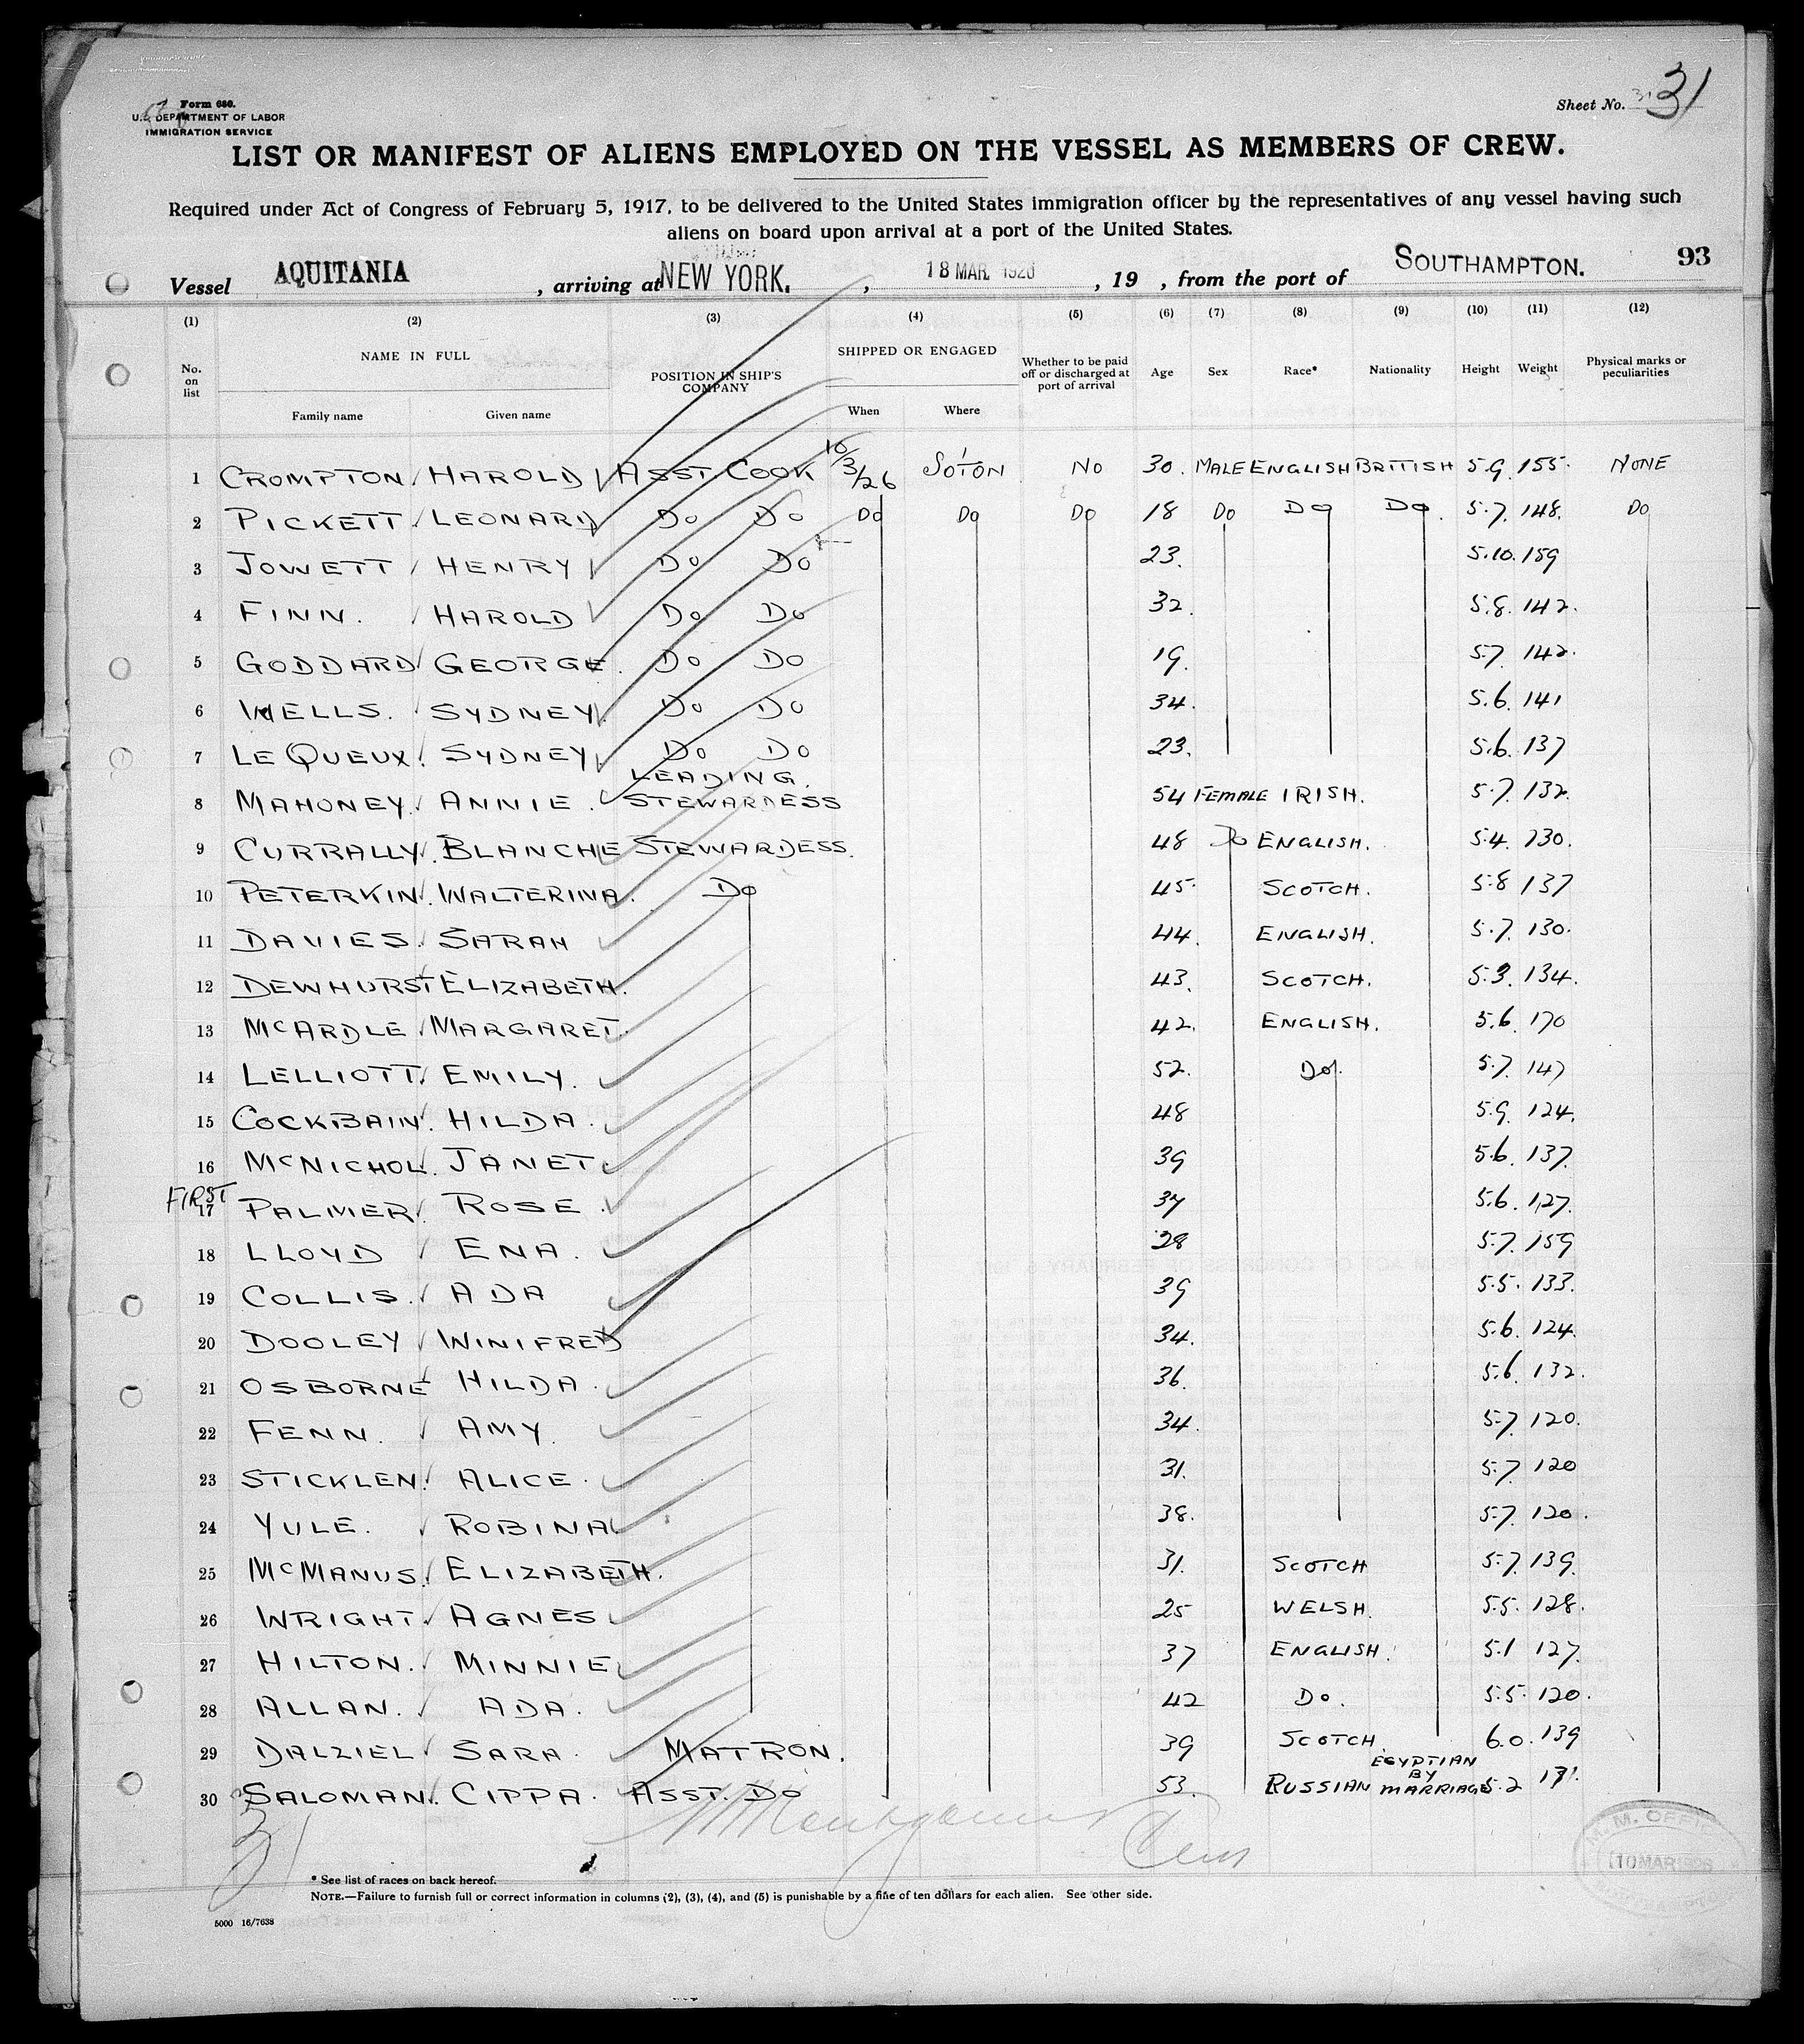 Form 680.
U.S. DEPARTMENT OF LABOR
IMMIGRATION SERVICE
Sheet No. 31
LIST OR MANIFEST OF ALIENS EMPLOYED ON THE VESSEL AS MEMBERS OF CREW.
Required under Act of Congress of February 5, 1917, to be delivered to the United States immigration officer by the representatives of any vessel having such
aliens on board upon arrival at a port of the United States.
Vessel AQUITANIA, arriving at NEW YORK., 18 MAR. 1926, 19 , from the port of SOUTHAMPTON. 93
(1) (2) (3) (4) (5) (6) (7) (8) (9) (10) (11) (12)
No. on list NAME IN FULL POSITION IN SHIP'S COMPANY SHIPPED OR ENGAGED Whether to be paid off or discharged at port of arrival Age Sex Race* Nationality Height Weight Physical marks or peculiarities
Family name Given name When Where
1 CROMPTON HAROLD ASST COOK 10/3/26 SO'TON NO 30. MALE ENGLISH BRITISH 5.9. 155. NONE
2 PICKETT. LEONARD DO DO DO DO DO 18 DO DO DO. 5.7. 148. DO
3 JOWETT HENRY DO DO 23. 5.10. 159
4 FINN. HAROLD DO DO 32. 5.8. 142.
5 GODDARD GEORGE. DO DO 19. 5.7. 142.
6 WELLS. SYDNEY. DO DO 34. 5.6. 141
7 LE QUEUX. SYDNEY DO DO 23. 5.6. 137
8 MAHONEY. ANNIE. LEADING. STEWARDESS 54 FEMALE IRISH. 5.7. 132.
9 CURRALLY. BLANCHE STEWARDESS. 48 DO ENGLISH. 5.4. 130.
10 PETERKIN. WALTERINA. DO 45. SCOTCH. 5.8 137
11 DAVIES. SARAH 44. ENGLISH. 5.7. 130.
12 DEWHURST ELIZABETH. 43. SCOTCH. 5.3. 134.
13 McARDLE MARGARET. 42. ENGLISH. 5.6. 170
14 LELLIOTT. EMILY. 52. DO. 5.7. 147
15 COCKBAIN. HILDA. 48 5.9. 124.
16 McNICHOL. JANET. 39 5.6. 137.
FIRST
17 PALMER. ROSE. 37 5.6. 127.
18 LLOYD ENA. 28 5.7. 159
19 COLLIS. ADA 39 5.5. 133.
20 DOOLEY WINIFRED 34. 5.6. 124.
21 OSBORNE HILDA. 36. 5.6. 132.
22 FENN. AMY. 34. 5.7. 120.
23 STICKLEN. ALICE. 31. 5.7. 120
24 YULE. ROBINA. 38. 5.7. 120.
25 McMANUS. ELIZABETH. 31. SCOTCH 5.7. 139.
26 WRIGHT. AGNES 25 WELSH. 5.5. 128.
27 HILTON. MINNIE 37 ENGLISH. 5.1 127.
28 ALLAN. ADA. 42 DO. 5.5. 120.
29 DALZIEL SARA. MATRON. 39 SCOTCH 6.0. 139
30 SALOMAN. CIPPA. ASST. DO 53. RUSSIAN EGYPTIAN BY MARRIAGE 5.2
31
* See list of races on back hereof.
NOTE.—Failure to furnish full or correct information in columns (2), (3), (4), and (5) is punishable by a fine of ten dollars for each alien. See other side.
5000 16/7638
10 MAR 1926